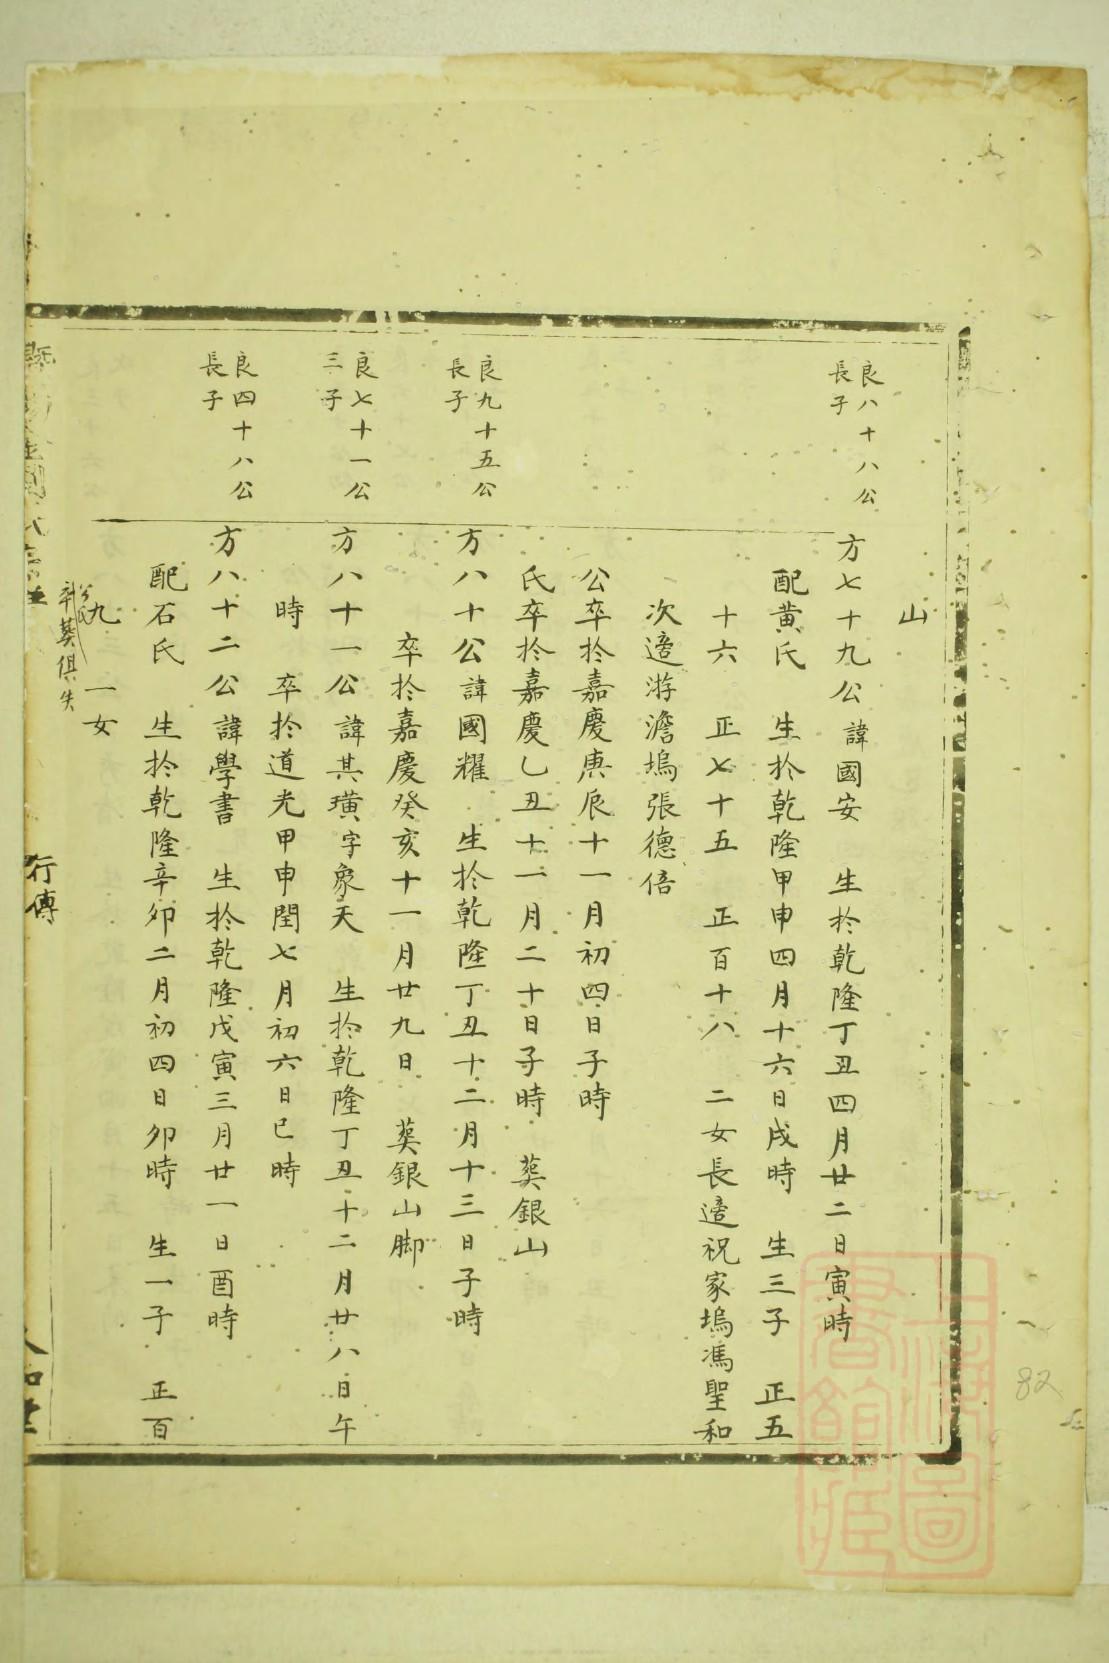 山
良八十八公
長子
方七十九公諱國安　生於乾隆丁丑四月廿二日寅時
配黄氏　生於乾隆甲申四月十六日戌時　生三子　正五
十六　正七十五　正百十八　二女長適祝家塢馮聖和
次適游澹塢張德倍
公卒於嘉慶庚辰十一月初四日子時
氏卒於嘉慶乙丑十一月二十日子時　葬銀山
良九十五公
長子
方八十公諱國耀　生於乾隆丁丑十二月十三日子時
卒於嘉慶癸亥十一月廿九日　葬銀山脚
良七十一公
三子
方八十一公諱其璜字象天　生於乾隆丁丑十二月廿八日午
時　卒於道光甲申閏七月初六日巳時
良四十八公
長子
方八十二公諱學書　生於乾隆戊寅三月廿一日酉時
配石氏　生於乾隆辛卯二月初四日卯時　生一子　正百
九　一女
公氏
卒葬俱失
行傳
82
上海圖書館藏